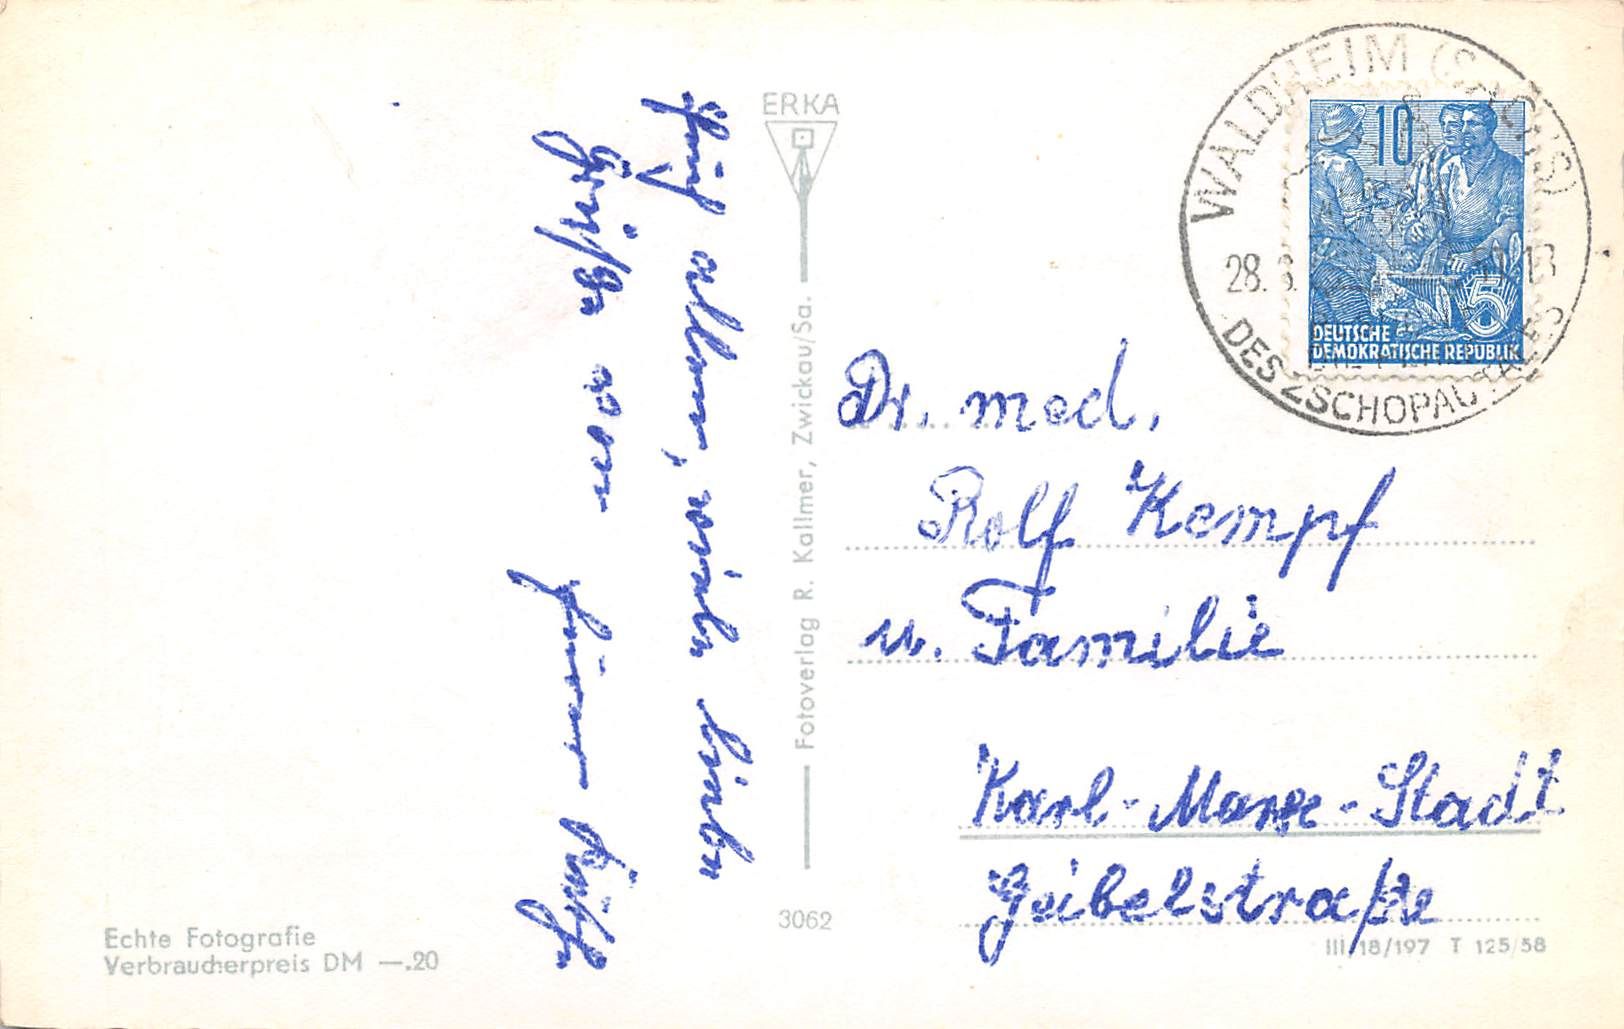 Euch allen, viele liebe
Grüße von Eurer Käthe
ERKA
Fotoverlag R. Kallmer, Zwickau/Sa.
3062
WALDHEIM (SACHS)
28.
DES ZSCHOPAUTALES
10
5
DEUTSCHE
DEMOKRATISCHE REPUBLIK
Dr. med.
Rolf Kempf
u. Familie
Karl-Marx-Stadt
Geibelstraße
Echte Fotografie
Verbraucherpreis DM —.20
III/18/197 T 125/58